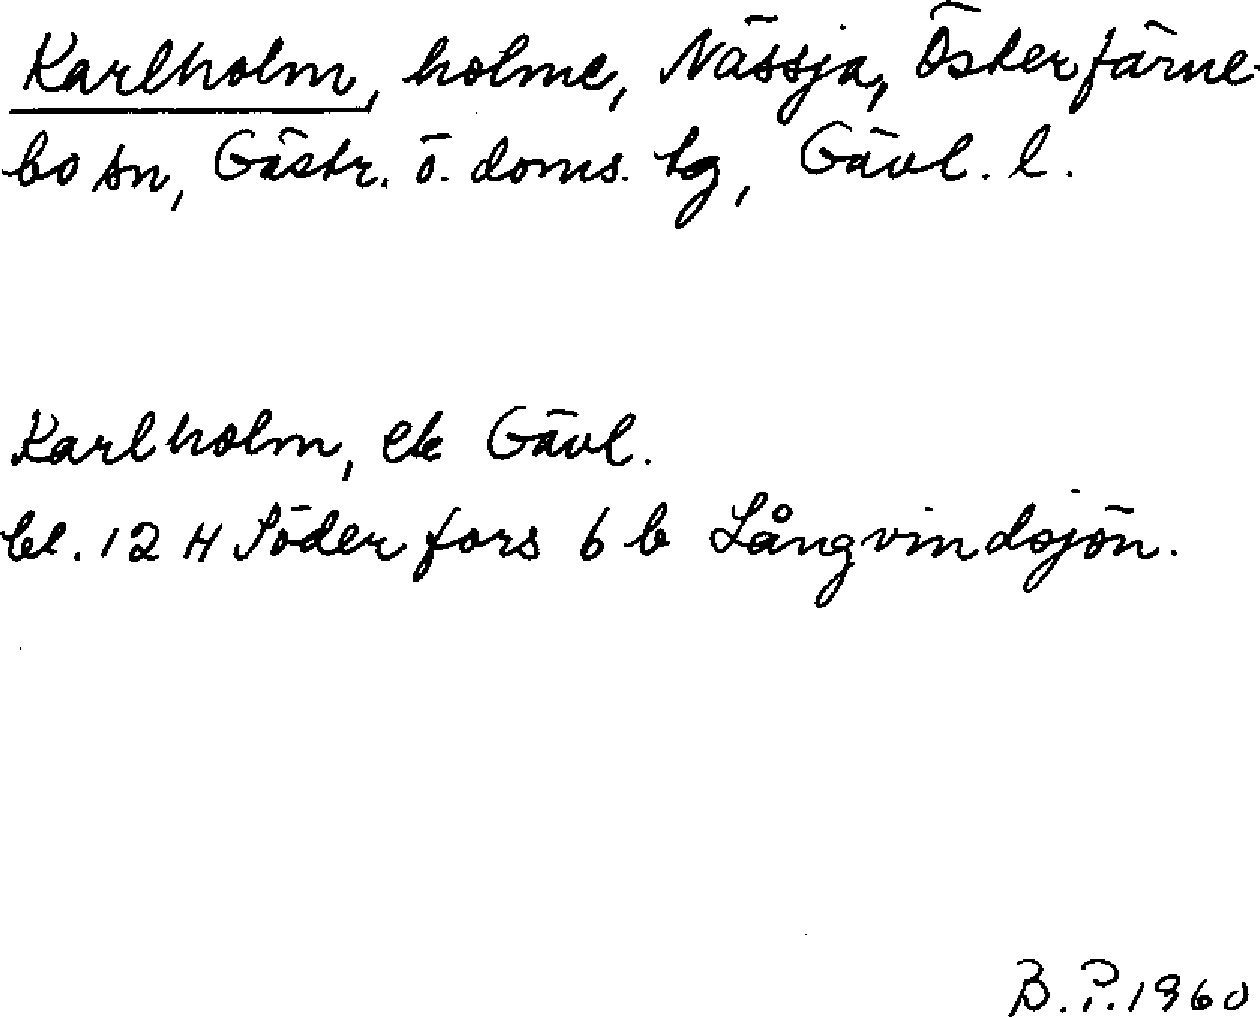 Karlholm, holme, Nässja, Österfärne-
bo sn, Gästr. ö. doms. tg, Gävl. l.
Karlholm, ek Gävl.
bl. 12 H Söderfors 6 b Långvindsjön.
B. P. 1960